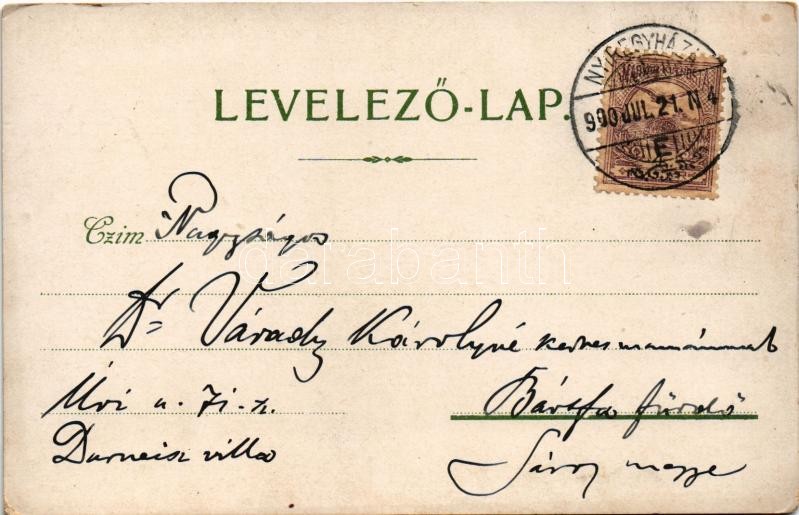 LEVELEZŐ-LAP.
NYIREGYHÁZA
900 JUL. 21. N 4
E
Czim Nagyságos
Dr Várady Károlyné kedves mamámnak
Bártfa fürdő
Sáros megye
Darneisz villa
darabanth